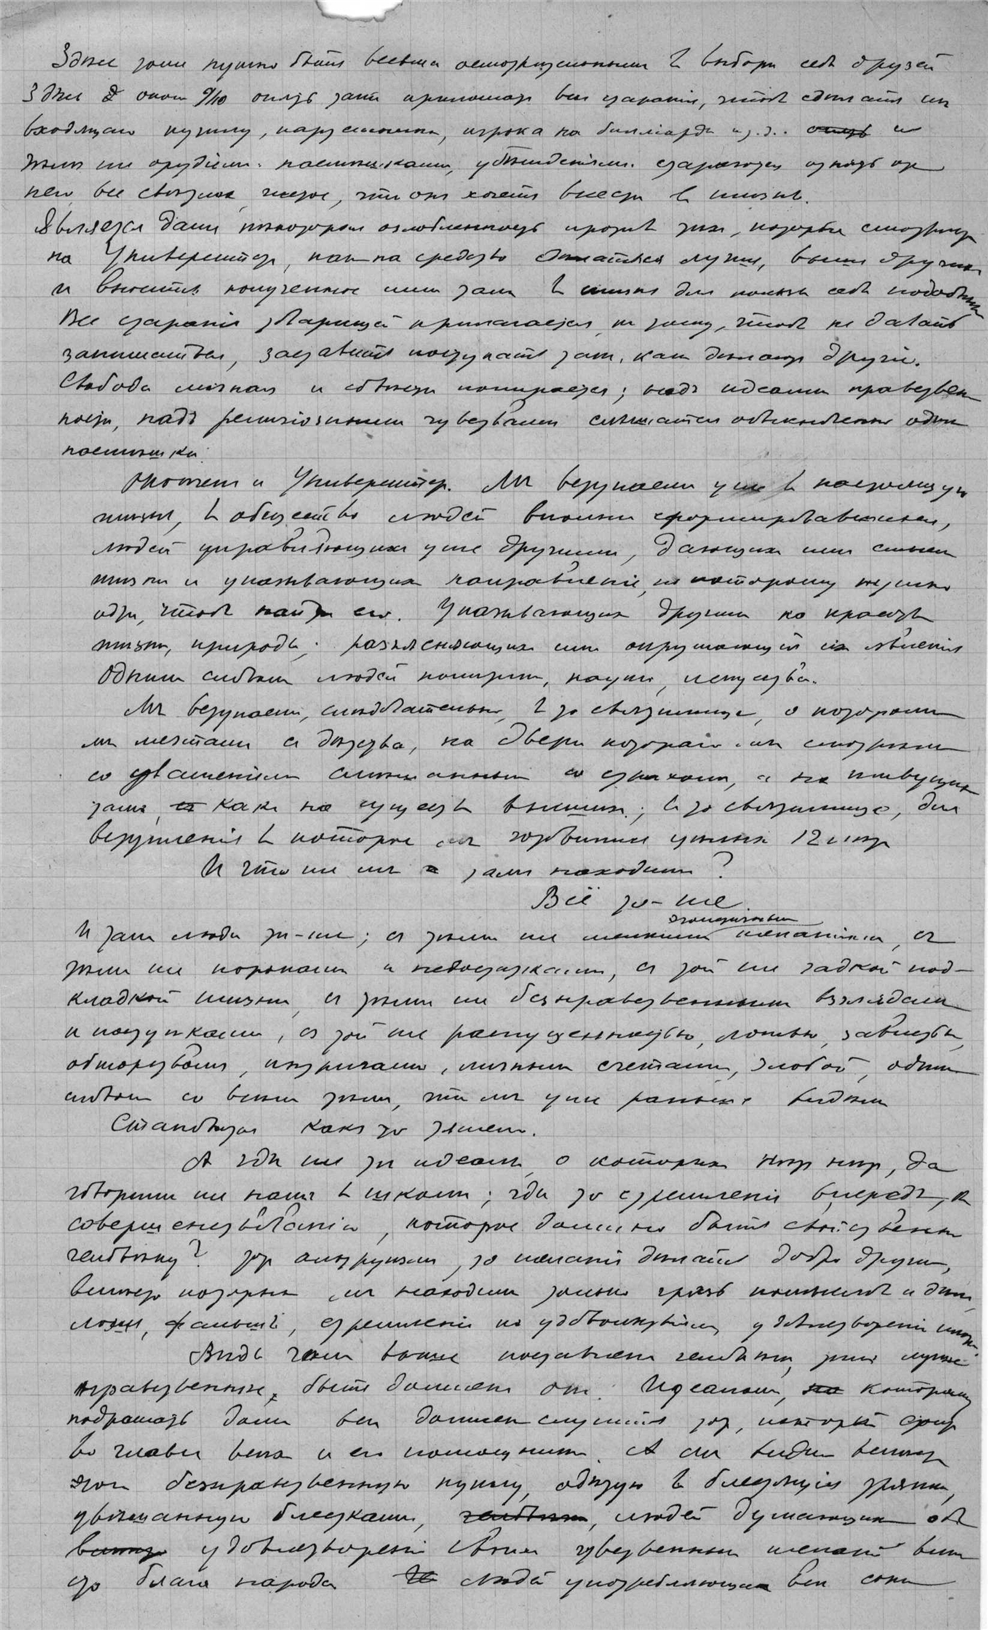 Здѣсь тоже нужно быть весьма осторожнымъ въ выборѣ себѣ друзей
Здѣсь около 9/10 опять таки прилагаютъ все старанія, чтобъ сдѣлать изъ
входящаго кутилу, игрока на билліардѣ и
тѣми же орудіями насмѣшками, убѣжденіями стараются отнять от
него все святое, чистое, что онъ хочетъ внести въ жизнь.
Является даже некоторая озлобленность противъ тѣхъ, которые смотрятъ
на Университетъ, какъ на средство сдѣлаться лучше, выше другихъ
и вносить полученное ими тамъ въ жизнь для пользы себѣ подобныхъ
Все стараніе товарищей прилагается къ тому, чтобъ не давать
заниматься, заставить поступать такъ, какъ дѣлаютъ другіе.
Свобода личная и попирается; надъ идеями нравствен
ности, надъ религіозными чувствами слышатся обыкновенно однѣ
насмѣшки.
Оконченъ и Университетъ. Мы вступаемъ уже въ настоящую
жизнь, въ общество людей вполнѣ сформировавшихся,
людей управляющихъ уже другими, дающихъ имъ смыслъ
жизни и указывающихъ направленіе, по которому нужно
идти, чтобъ найти его. Указывающихъ другимъ на красоты
жизни, природы; разъясняющихъ имъ окружающія ихъ явленія
Однимъ словомъ людей науки, искусства.
Мы вступаемъ, слѣдовательно, въ то святилище, о которомъ
мы мечтали съ дѣтства, на двери котораго мы смотрѣли
со уваженіемъ смѣшаннымъ со страхомъ, а на живущихъ
тамъ, какъ на существъ высшихъ; въ то святилище, для
вступленія въ которое мы готовились цѣлыхъ 12 лѣтъ
И что же мы тамъ находимъ?
Всё то-же.
И тамъ люди тѣ-же; съ тѣми же мелкими эгоистичными желаніями, съ
тѣми же пороками и недостатками, съ той же гадкой под-
кладкой жизни, съ тѣми же безнравственными взглядами
и поступками, съ той же распущенностью, ложью, завистью,
интригами, личными счетами, злобой, однимъ
словомъ со всѣмъ тѣмъ, что мы уже раньше видѣли
Становится какъ то тяжело.
А гдѣ же тѣ идеалы, о которыхъ нѣтъ нѣтъ, да
говорили же намъ въ школѣ; гдѣ то стремленіе впередъ, къ
совершенствованію, которое должно быть свойственно
человѣку? гдѣ альтруизмъ, то желаніе дѣлать добро другимъ,
вмѣсто которыхъ мы находимъ только грязь
ложь, фальшь, стремленіе къ удовлетворенію
Вѣдь чѣмъ выше поставленъ человѣкъ, тѣмъ лучше
нравственнѣе быть долженъ онъ. Идеаломъ, которому
подражать долженъ служить тотъ, который стоитъ
во главѣ всѣхъ и его помощники. А мы видимъ вмѣсто
того безнравственную куклу, одѣтую въ блестящія тряпки,
увѣшанную блестками, людей думающихъ объ
удовлетвореніи своихъ чувственныхъ желаній вмѣс
то блага народа людей употребляющихъ всѣ силы